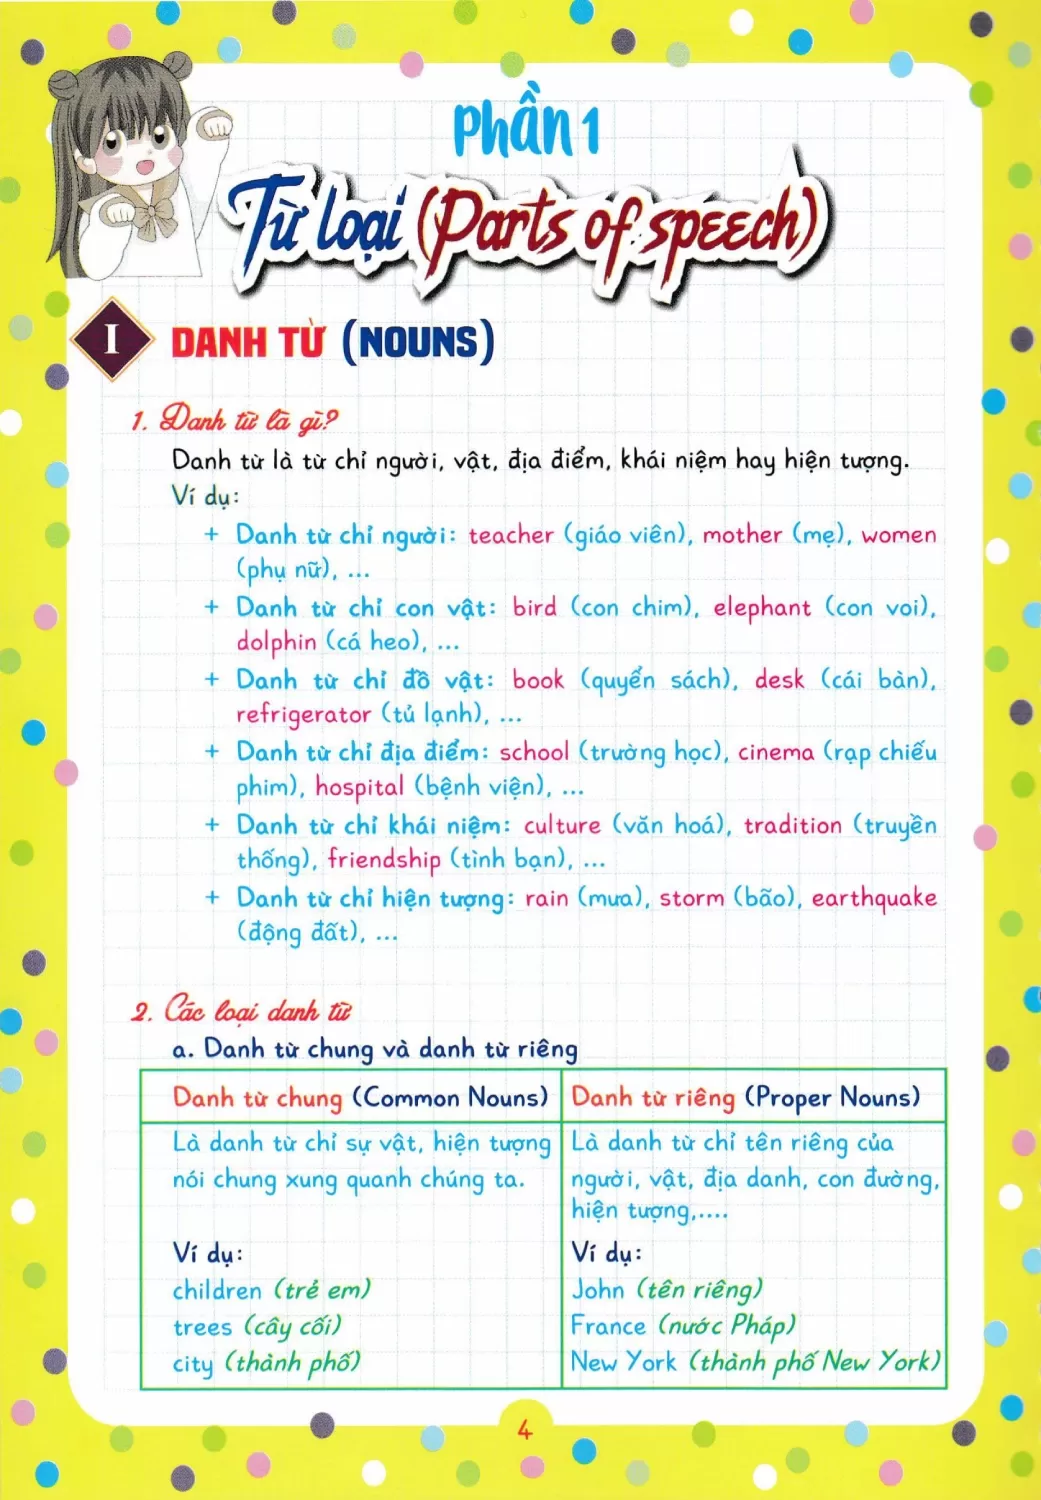 Phần 1
Từ loại (Parts of speech)
I DANH TỪ (NOUNS)
1. Danh từ là gì?
Danh từ là từ chỉ người, vật, địa điểm, khái niệm hay hiện tượng.
Ví dụ:
+ Danh từ chỉ người: teacher (giáo viên), mother (mẹ), women
(phụ nữ), ...
+ Danh từ chỉ con vật: bird (con chim), elephant (con voi),
dolphin (cá heo), ...
+ Danh từ chỉ đồ vật: book (quyển sách), desk (cái bàn),
refrigerator (tủ lạnh), ...
+ Danh từ chỉ địa điểm: school (trường học), cinema (rạp chiếu
phim), hospital (bệnh viện), ...
+ Danh từ chỉ khái niệm: culture (văn hoá), tradition (truyền
thống), friendship (tình bạn), ...
+ Danh từ chỉ hiện tượng: rain (mưa), storm (bão), earthquake
(động đất), ...
2. Các loại danh từ
a. Danh từ chung và danh từ riêng
Danh từ chung (Common Nouns)
Là danh từ chỉ sự vật, hiện tượng
nói chung xung quanh chúng ta.
Ví dụ:
children (trẻ em)
trees (cây cối)
city (thành phố)
Danh từ riêng (Proper Nouns)
Là danh từ chỉ tên riêng của
người, vật, địa danh, con đường,
hiện tượng,....
Ví dụ:
John (tên riêng)
France (nước Pháp)
New York (thành phố New York)
4